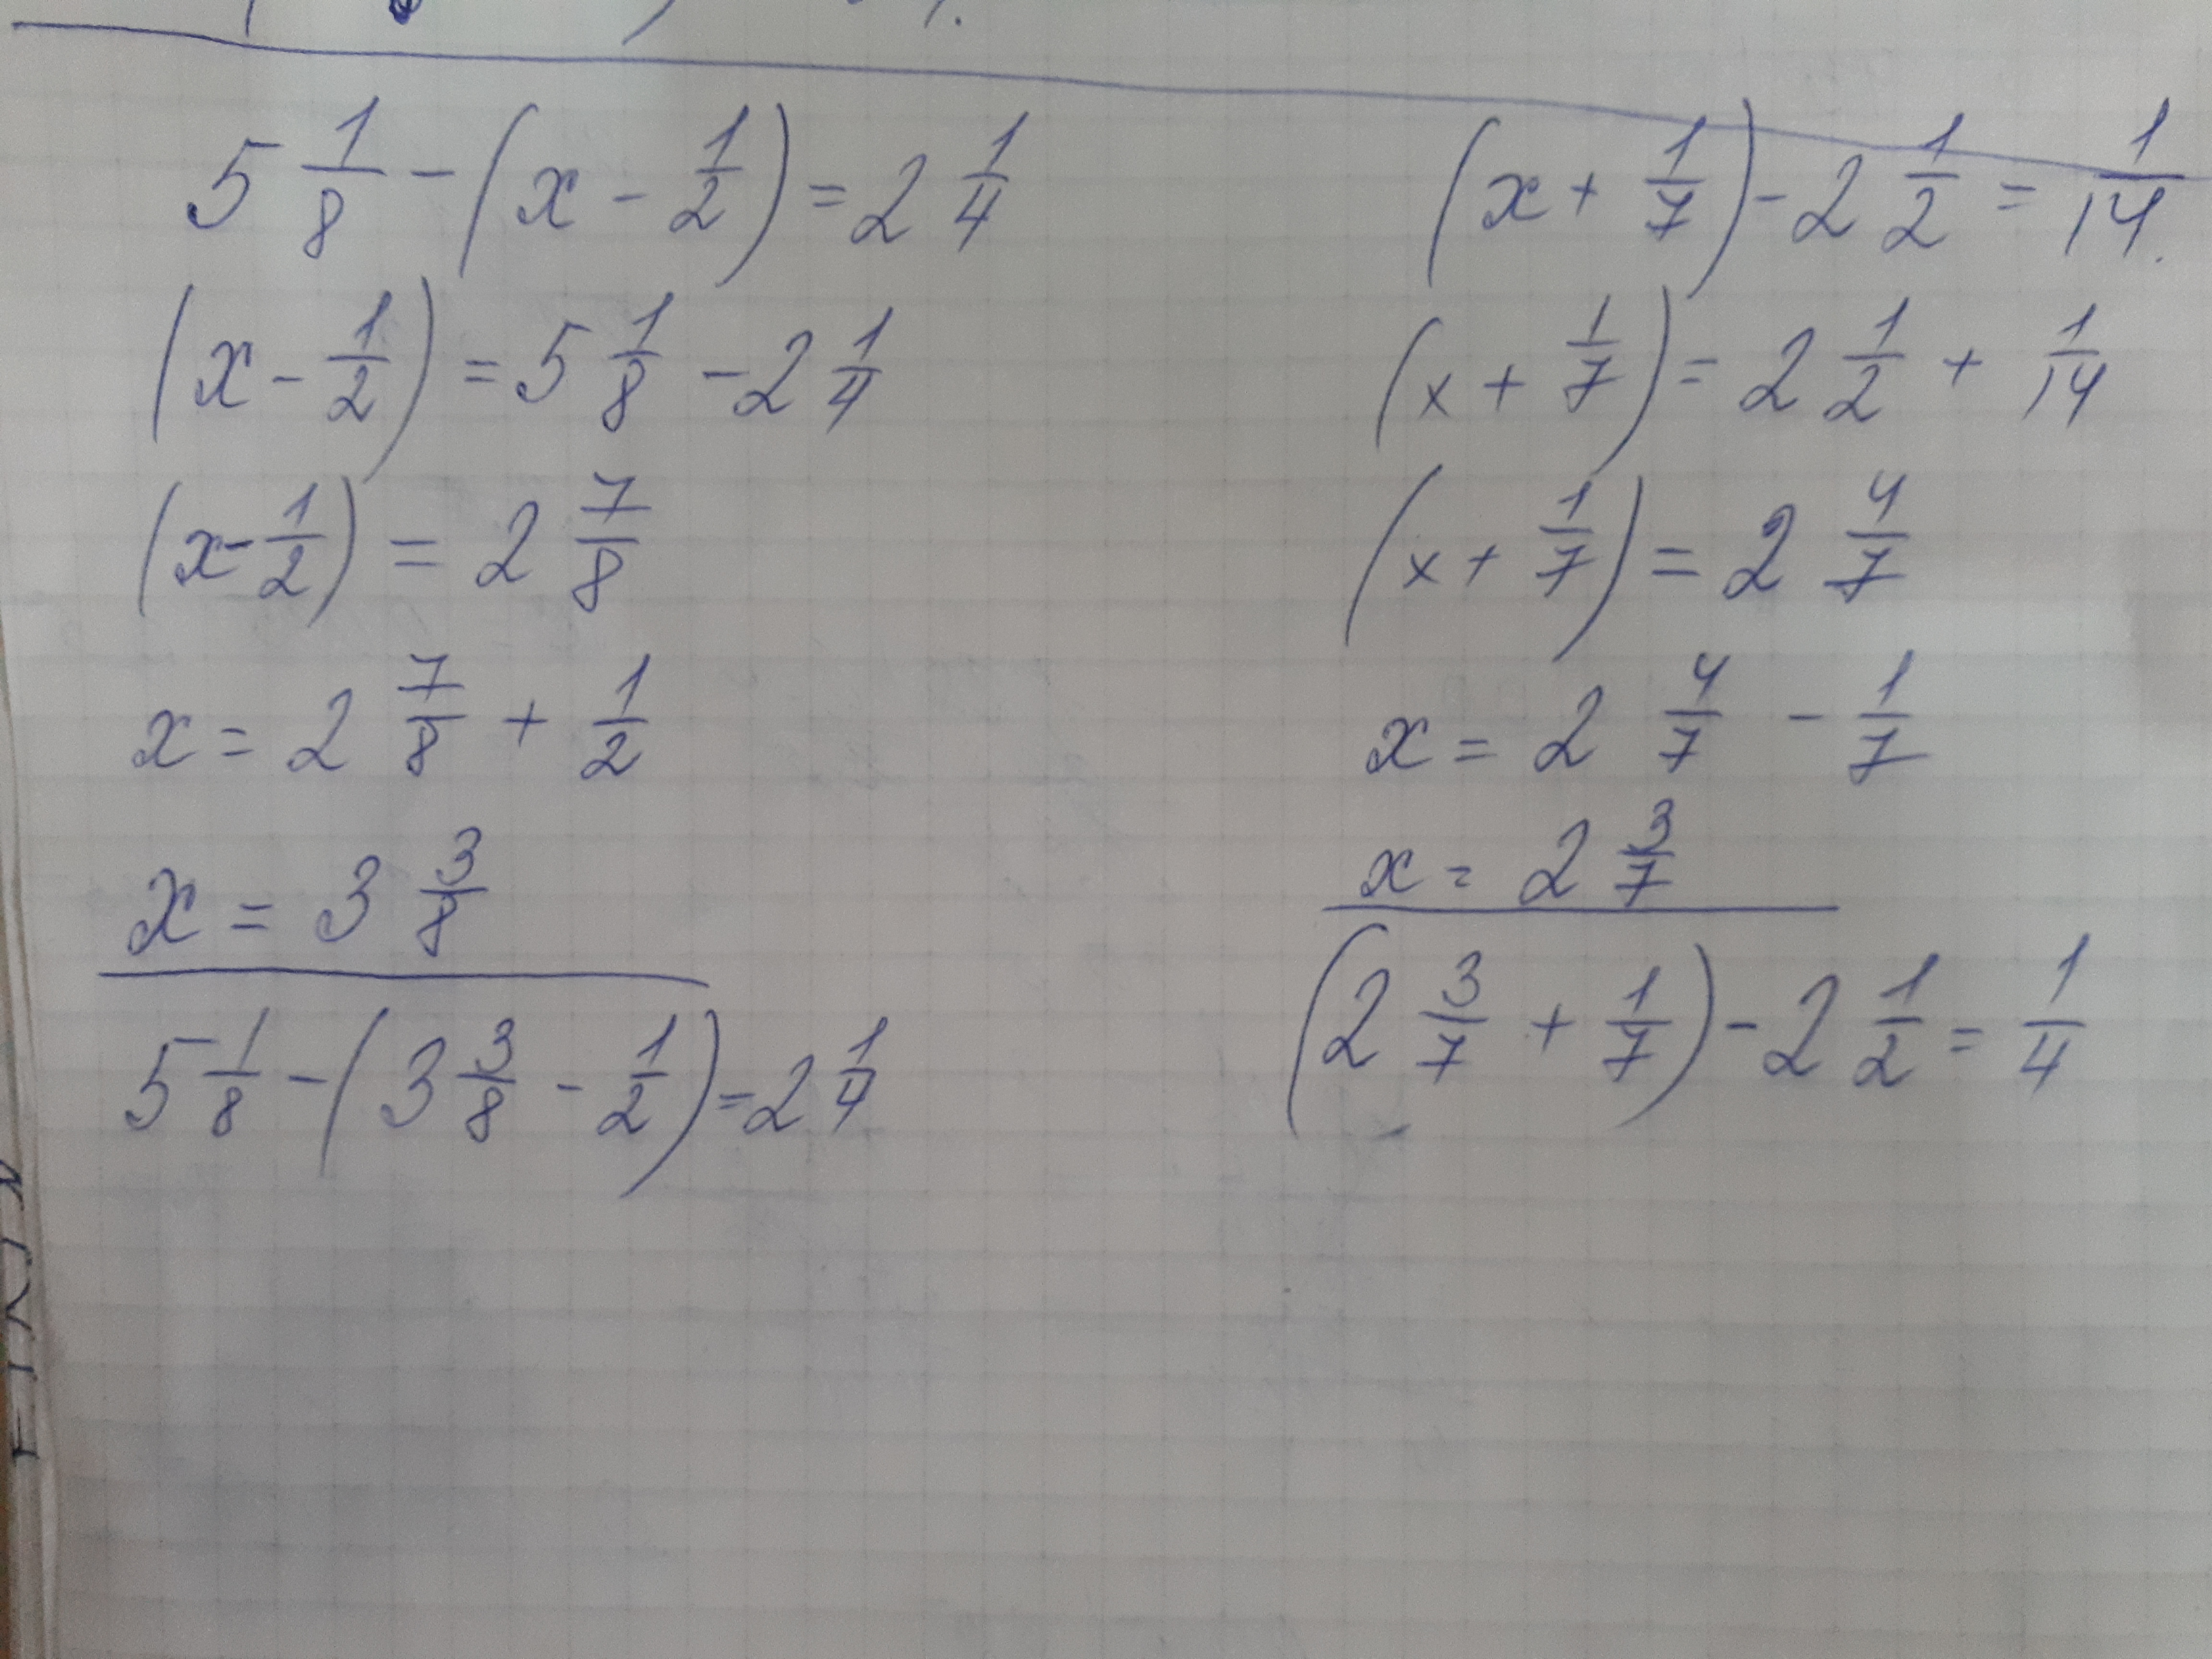 5 1/8 - (x - 1/2) = 2 1/4
(x - 1/2) = 5 1/8 - 2 1/4
(x - 1/2) = 2 7/8
x = 2 7/8 + 1/2
x = 3 3/8
5 1/8 - (3 3/8 - 1/2) = 2 1/4
(x + 1/7) - 2 1/2 = 1/14.
(x + 1/7) = 2 1/2 + 1/14
(x + 1/7) = 2 4/7
x = 2 4/7 - 1/7
x = 2 3/7
(2 3/7 + 1/7) - 2 1/2 = 1/4